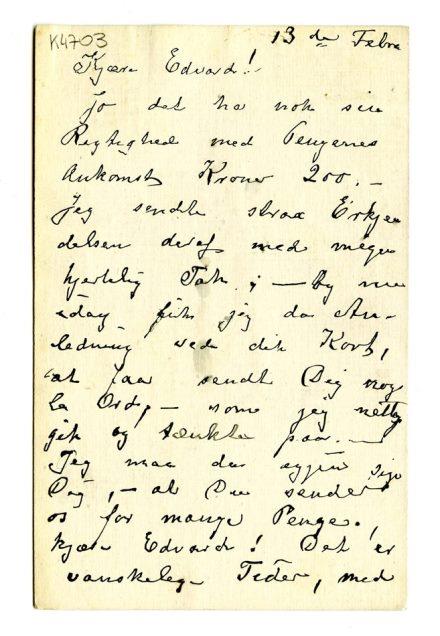 K4703
13 de Febr
Kjære Edvard!
Jo det ha nok sin
Rigtighed med Pengenes
Ankomst Kroner 200. –
Jeg sendte strax Erkjen
delsen deraf med megen
hjertelig Tak; – Og nu
idag fik jeg da An-
ledning ved dit Kort,
at faa sendt Dig nog
le Ord, – som jeg nettop
gik og tænkte paa. –
Jeg maa da igjen sige
Dig, – at Du sender
os for mange Penge.,
kjære Edvard! Det er
vanskelige Tider, med